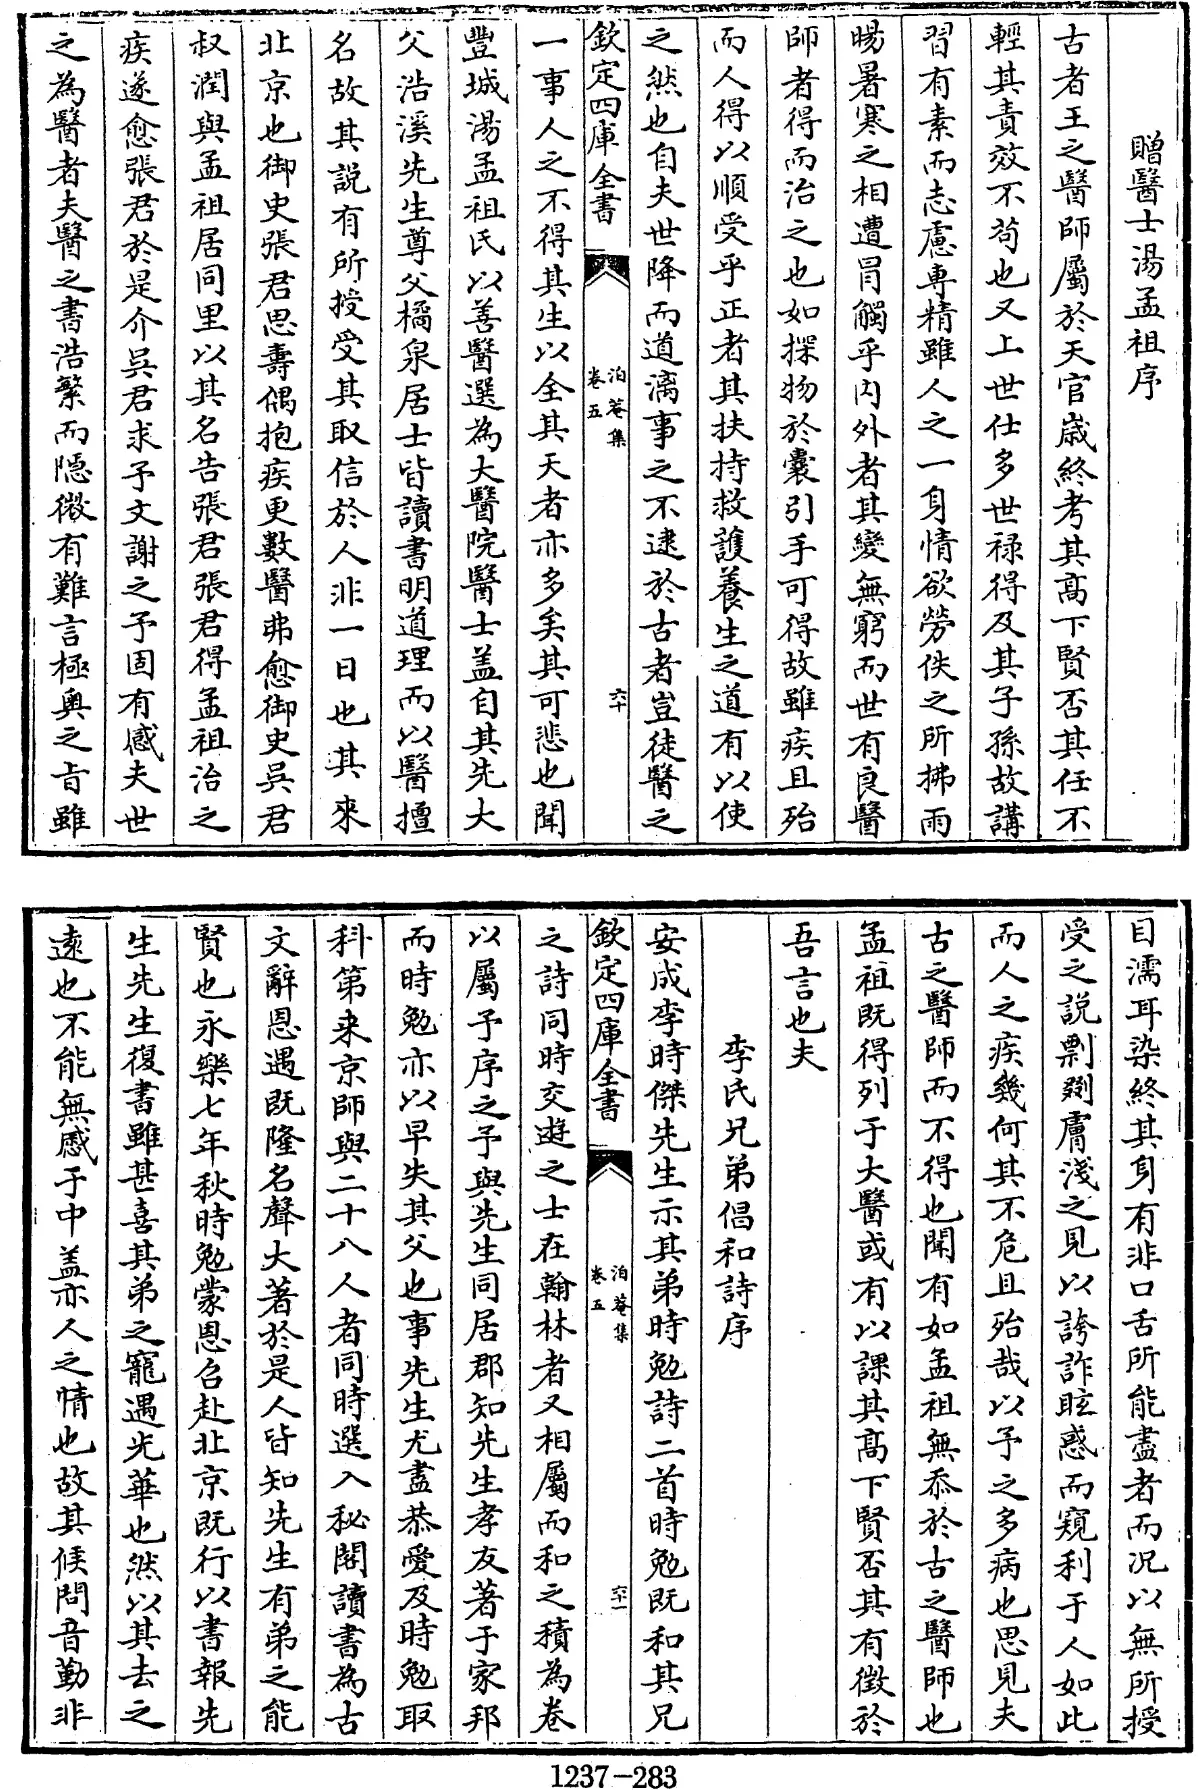 贈醫士湯孟祖序
古者王之醫師屬於天官嵗終考其髙下賢否其任不
輕其責效不茍也又上世仕多世禄得及其子孫故講
習有素而志慮専精雖人之一身情欲勞佚之所拂雨
暘暑寒之相遭冒觸乎内外者其變無窮而世有良醫
師者得而治之也如探物於囊引手可得故雖疾且殆
而人得以順受乎正者其扶持救護養生之道有以使
之然也自夫世降而道漓事之不逮於古者豈徒醫之
欽定四庫全書
泊菴集
卷五
六十
一事人之不得其生以全其天者亦多矣其可悲也聞
豐城湯孟祖氏以善醫選為大醫院醫士盖自其先大
父浩溪先生尊父橘泉居士皆讀書明道理而以醫擅
名故其説有所授受其取信於人非一日也其來
北京也御史張君思壽偶抱疾更數醫弗愈御史吳君
叔潤與孟祖居同里以其名告張君張君得孟祖治之
疾遂愈張君於是介吳君求予文謝之予固有感夫世
之為醫者夫醫之書浩繁而隠微有難言極奥之旨雖
目濡耳染終其身有非口舌所能盡者而况以無所授
受之説剽剟膚淺之見以誇詐眩惑而窺利于人如此
而人之疾幾何其不危且殆哉以予之多病也思見夫
古之醫師而不得也聞有如孟祖無忝於古之醫師也
孟祖既得列于大醫或有以課其髙下賢否其有徴於
吾言也夫
李氏兄弟倡和詩序
安成李時傑先生示其弟時勉詩二首時勉既和其兄
欽定四庫全書
泊菴集
卷五
六十一
之詩同時交遊之士在翰林者又相屬而和之積為卷
以屬予序之予與先生同居郡知先生孝友著于家邦
而時勉亦以早失其父也事先生尤盡恭愛及時勉取
科第来京師與二十八人者同時選入秘閣讀書為古
文辭恩遇既隆名聲大著於是人皆知先生有弟之能
賢也永樂七年秋時勉蒙恩召赴北京既行以書報先
生先生復書雖甚喜其弟之寵遇光華也然以其去之
逺也不能無感于中盖亦人之情也故其候問音勤非
1237-283